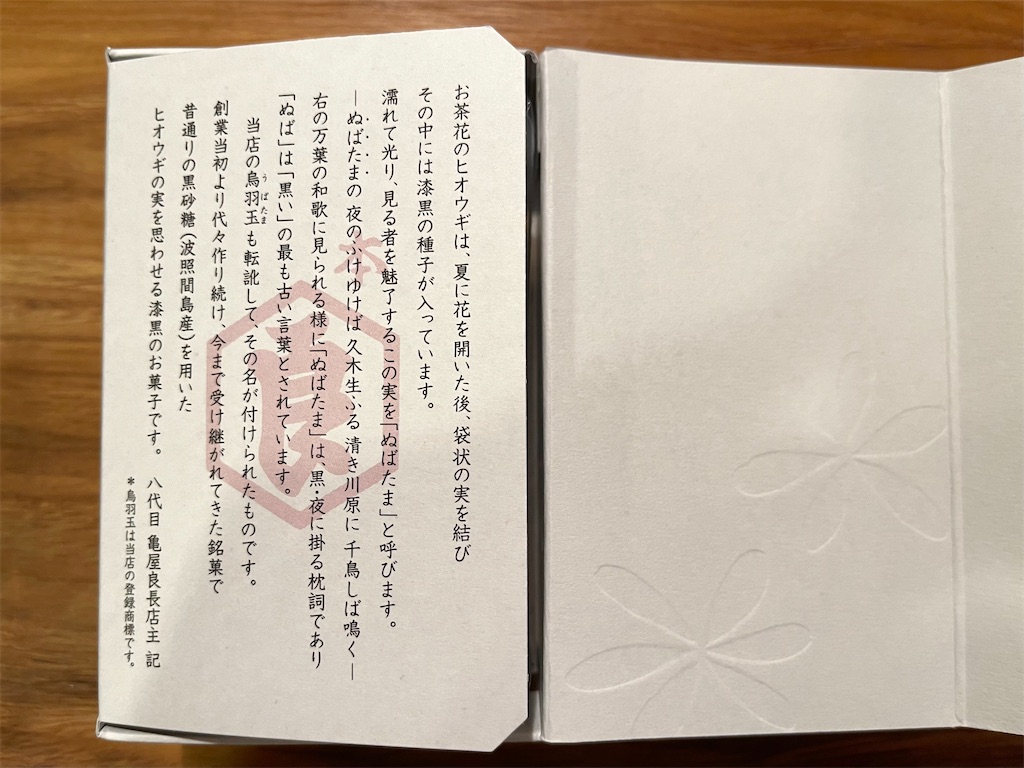 お茶花のヒオウギは、夏に花を開いた後、袋状の実を結び
その中には漆黒の種子が入っています。
濡れて光り、見る者を魅了するこの実を「ぬばたま」と呼びます。
―ぬばたまの 夜のふけゆけば 久木生ふる 清き川原に 千鳥しば鳴く―
右の万葉の和歌に見られる様に「ぬばたま」は、黒・夜に掛る枕詞であり
「ぬば」は「黒い」の最も古い言葉とされています。
当店の烏羽玉も転訛して、その名が付けられたものです。
うばたま
創業当初より代々作り続け、今まで受け継がれてきた銘菓で
昔通りの黒砂糖(波照間島産)を用いた
ヒオウギの実を思わせる漆黒のお菓子です。
八代目 亀屋良長店主 記
*烏羽玉は当店の登録商標です。
本
良